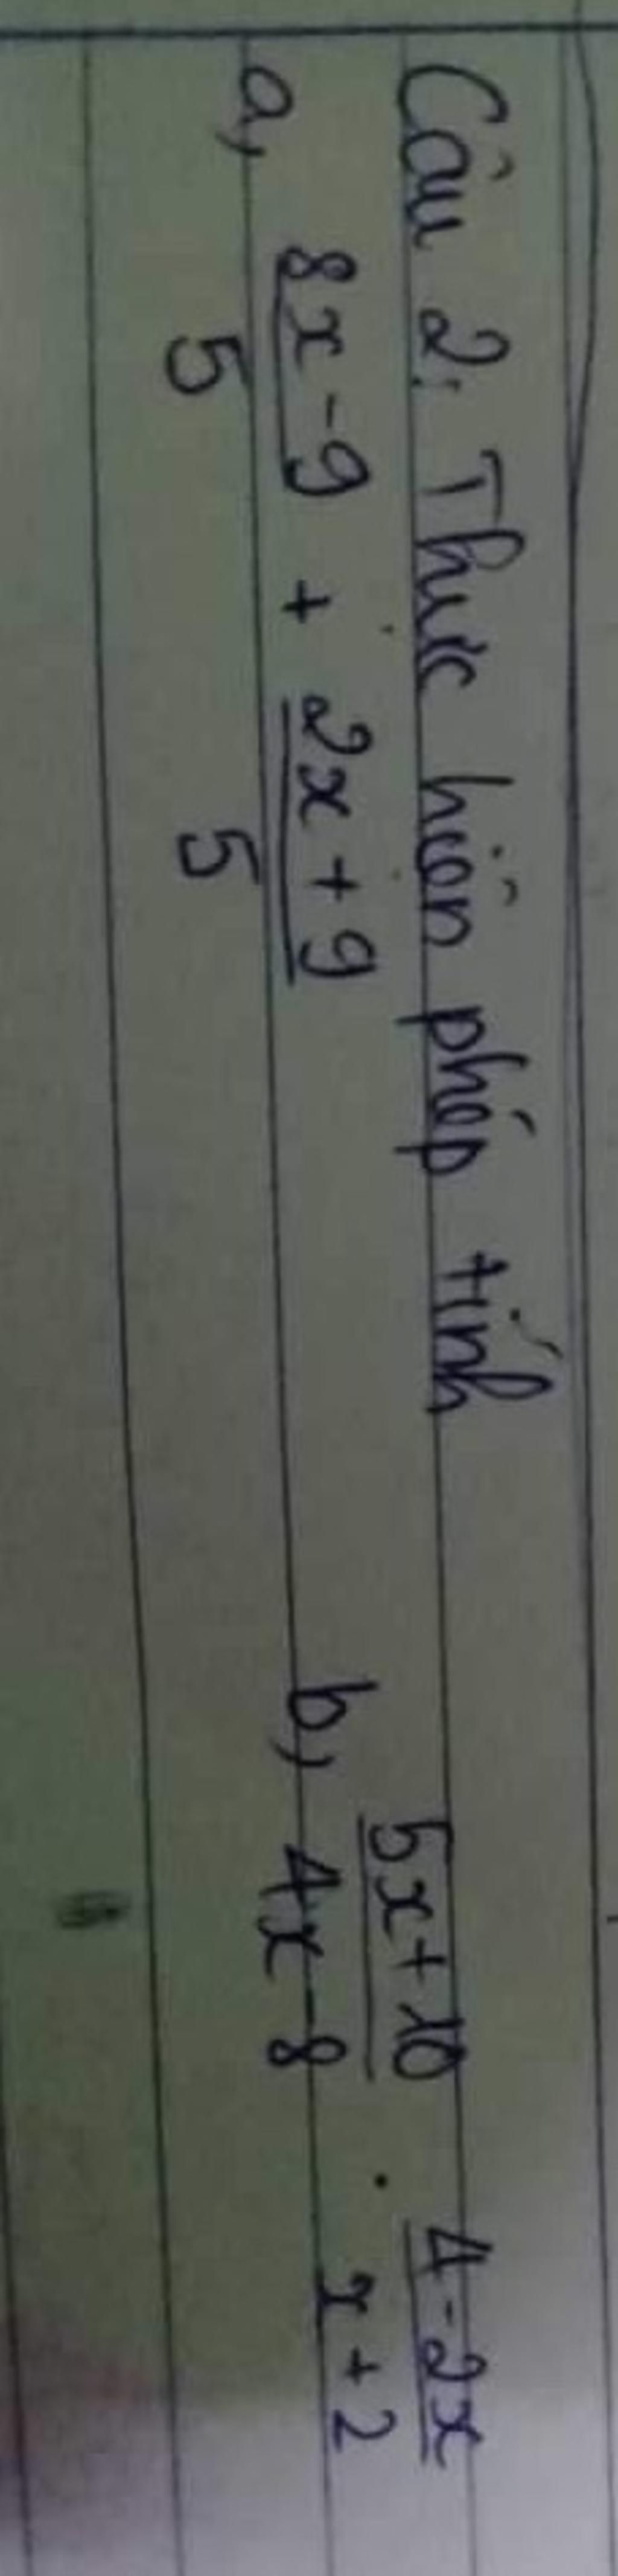 Câu 2: Thực hiện phép tính
a, (8x - 9)/5 + (2x + 9)/5
b, (5x + 10)/(4x - 8) · (4 - 2x)/(x + 2)